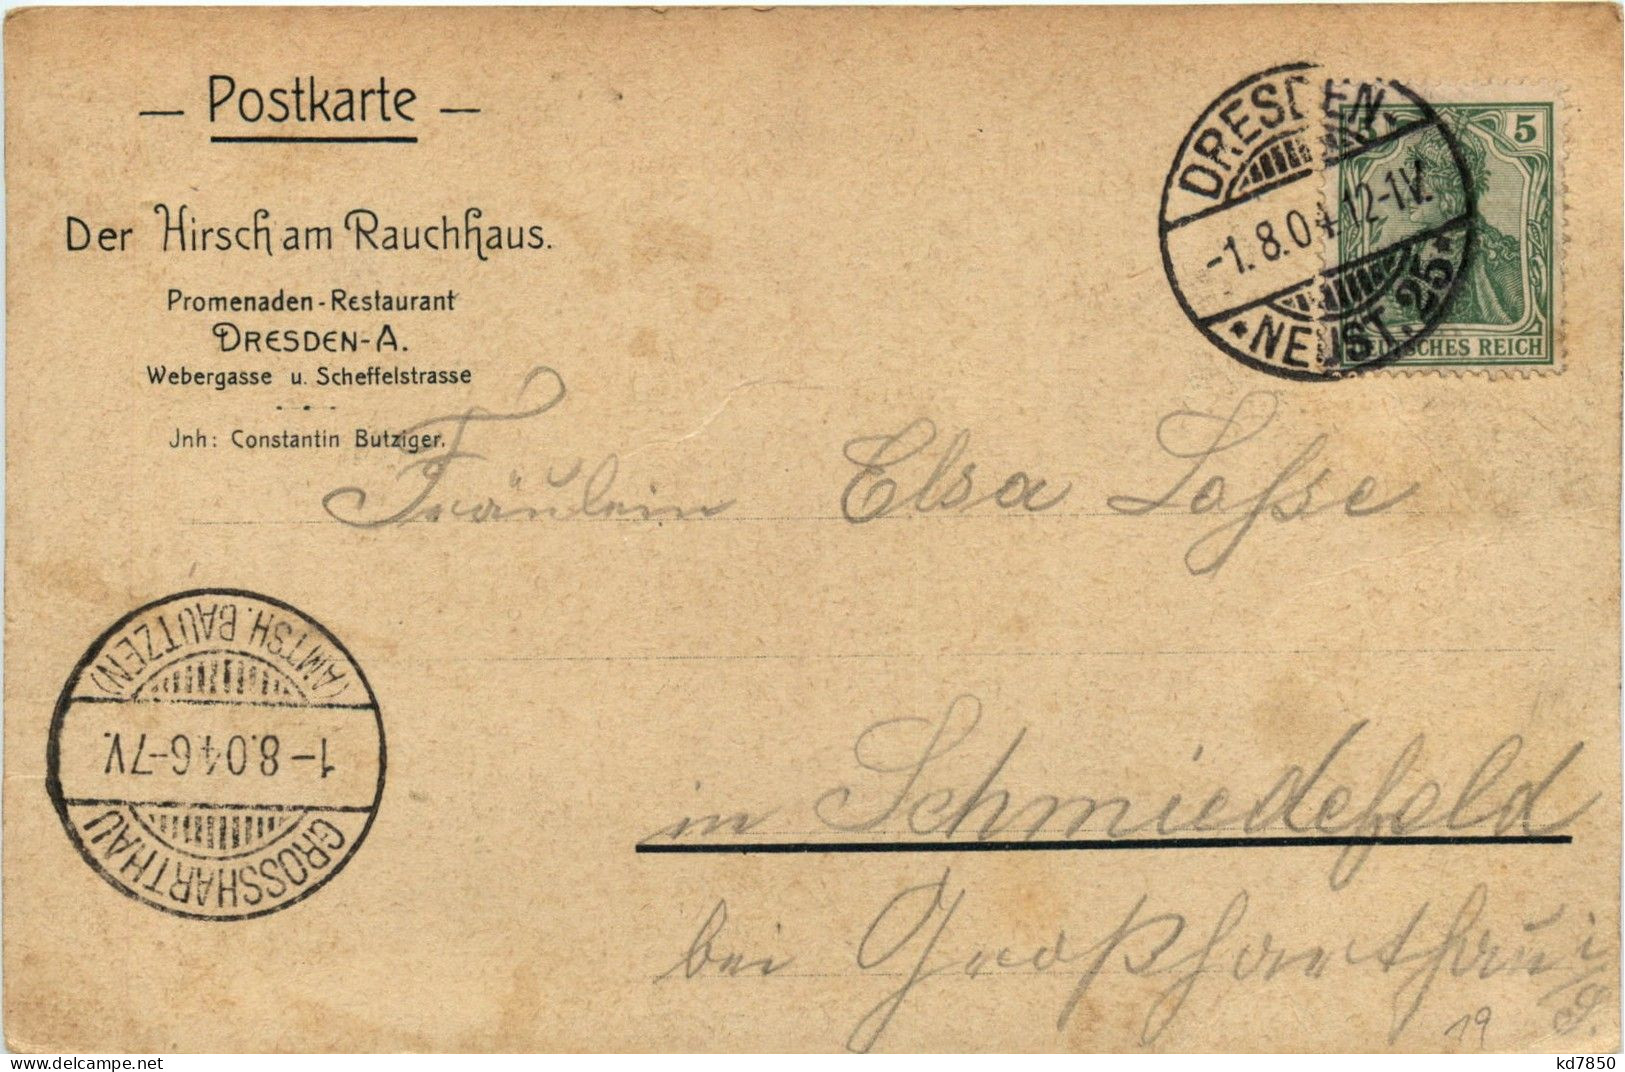 — Postkarte —
Der Hirsch am Rauchhaus.
Promenaden-Restaurant
DRESDEN-A.
Webergasse u. Scheffelstrasse
Jnh: Constantin Butziger.
DRESDEN
-1.8.04.12-1V.
* NEUST. 25 *
5 5
DEUTSCHES REICH
Fräulein Elsa Lasse
(AMTSH. BAUTZEN)
1-8.04.6-7V.
GROSSHARTHAU
in Schmiedefeld
bei Großharthau i/S.
19
kd7850